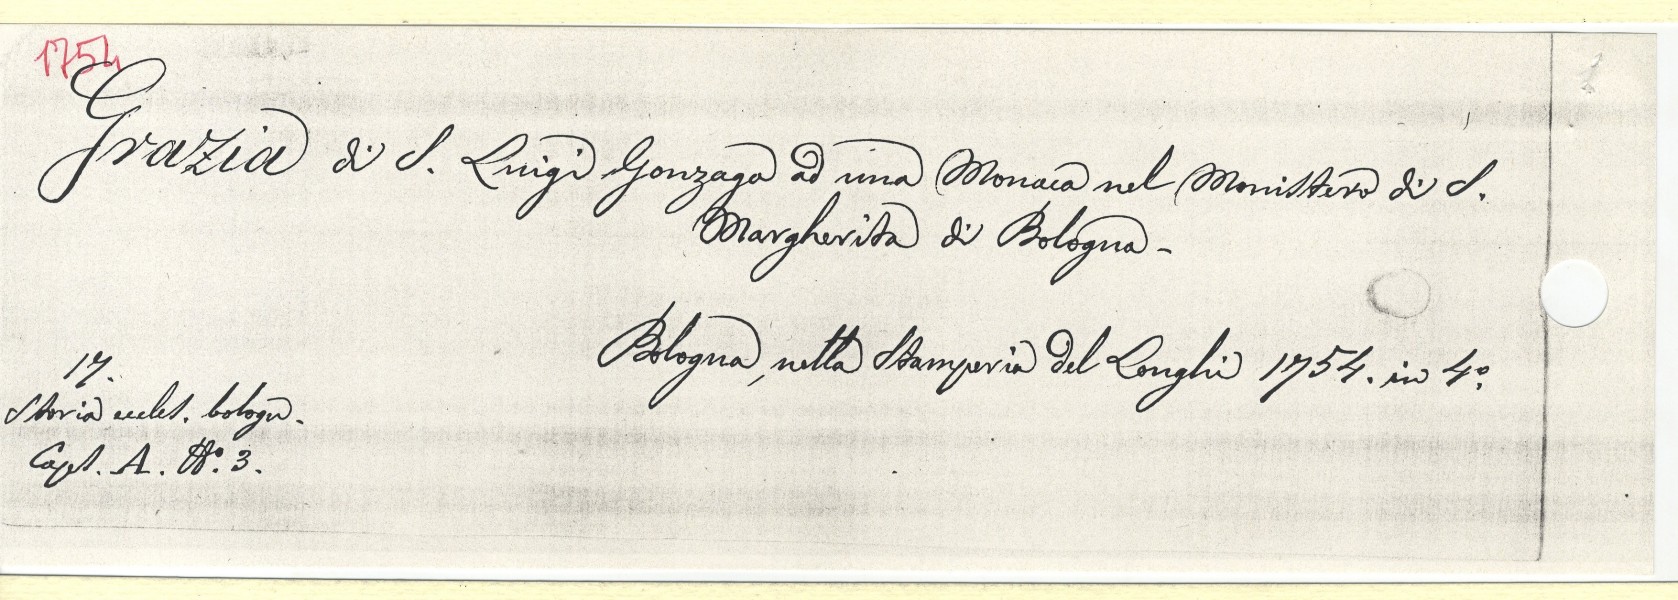 1754
Grazia di S. Luigi Gonzaga ad una Monaca nel Monistero di S.
Margherita di Bologna -
Bologna, nella Stamperia del Longhi 1754. in 4.º
17.
Storia eccles. bologn.
Caps. A. Nº. 3.